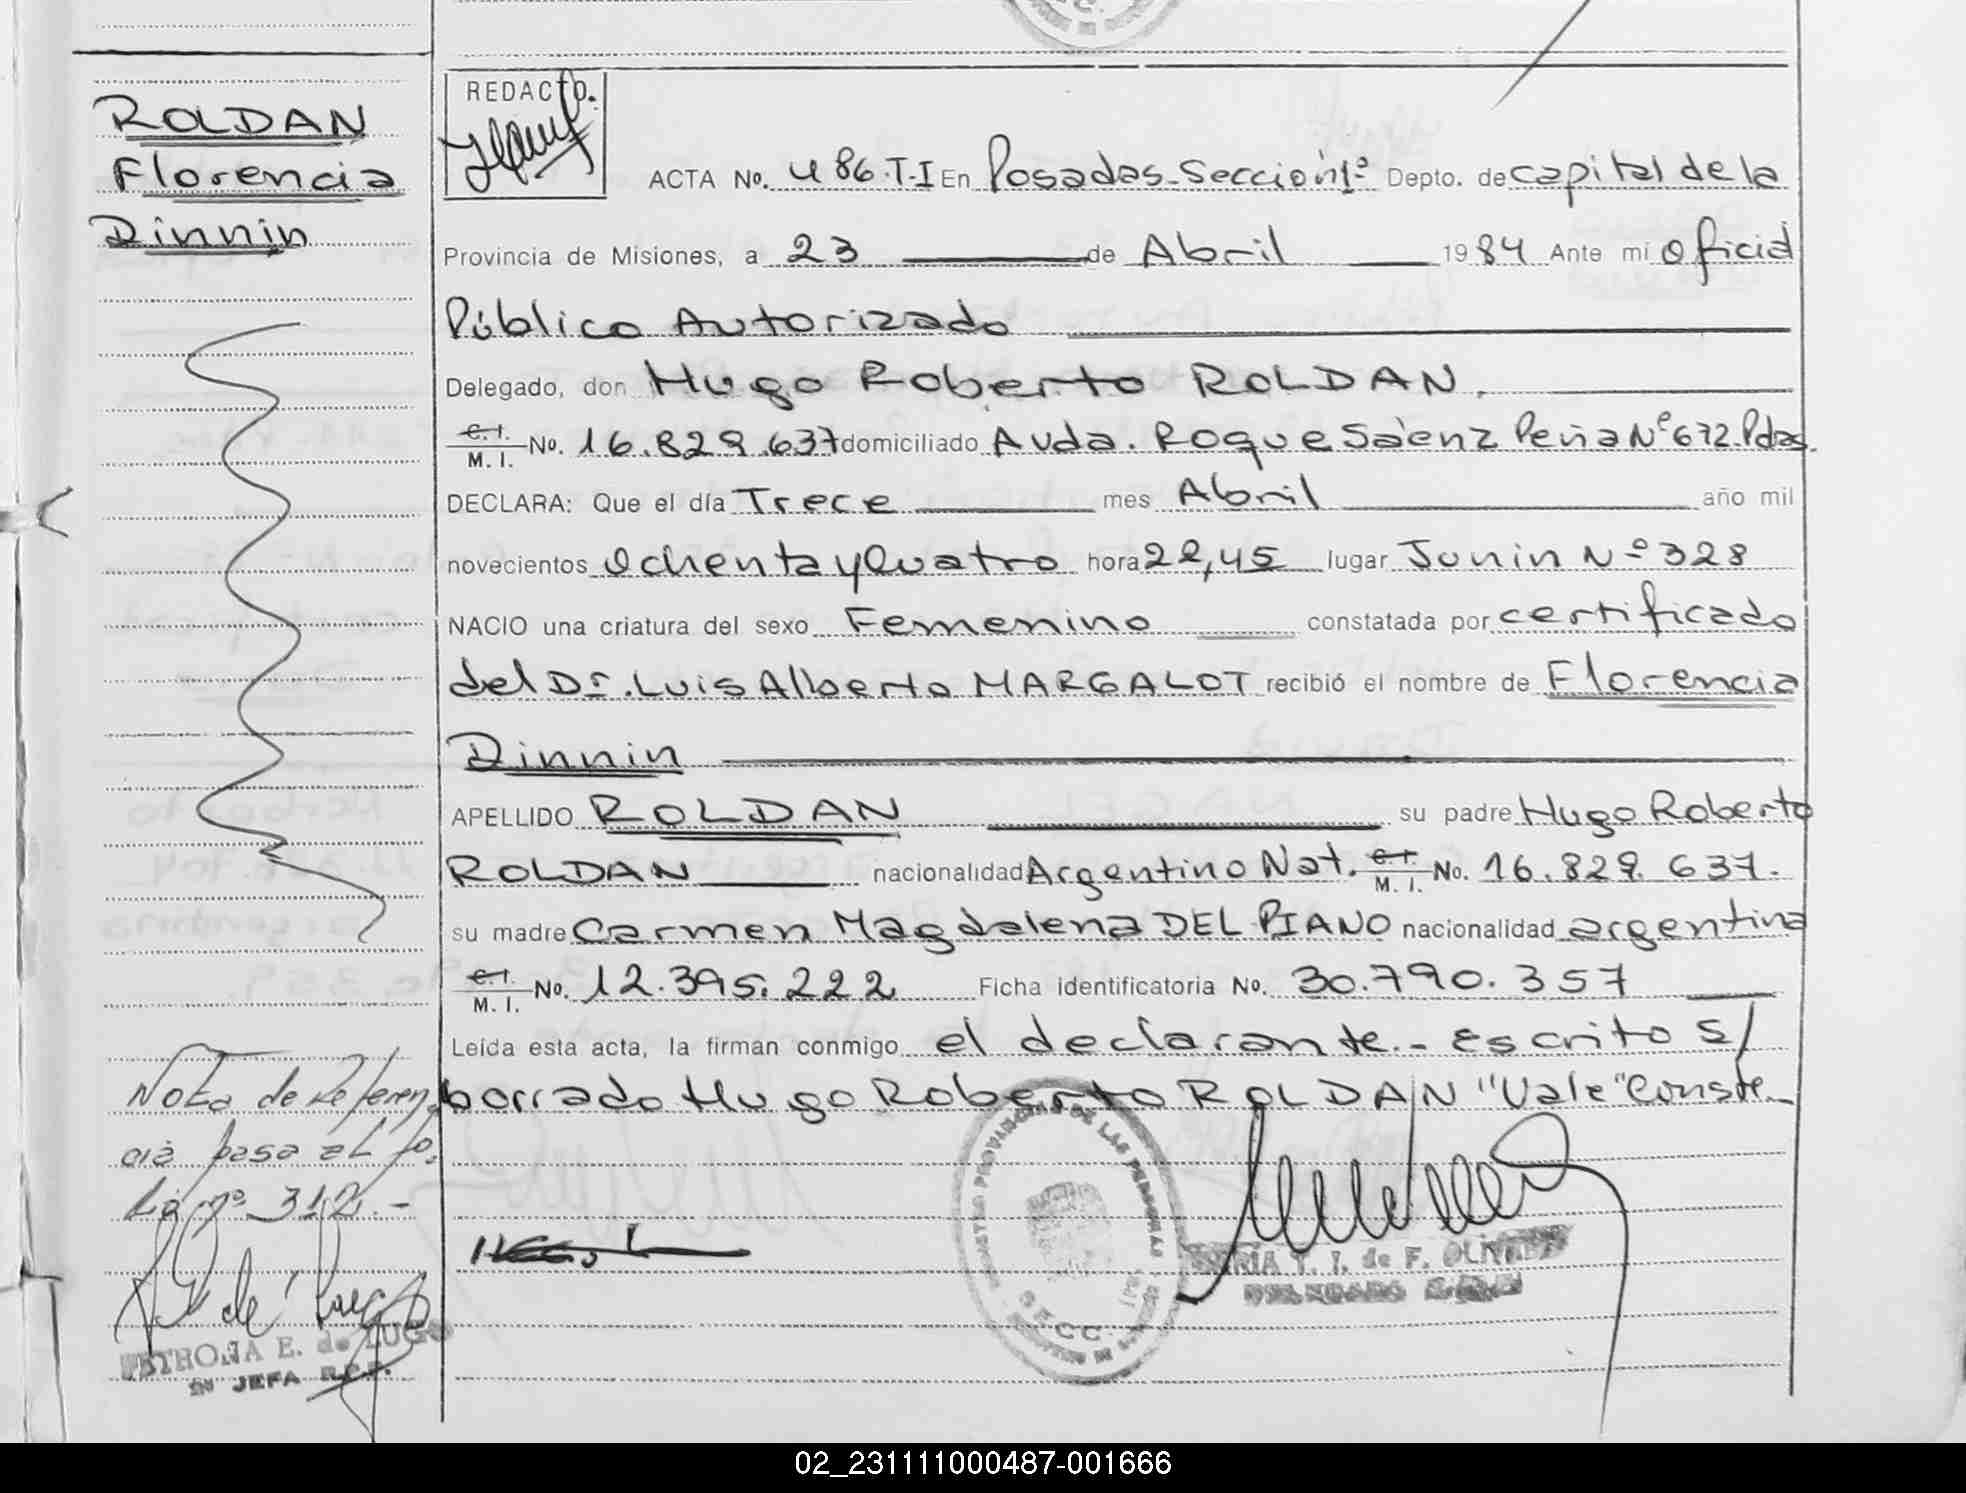 ROLDAN
Florencia
Dinnin
REDACTO.
ACTA No. 486.T-I En Posadas-Sección 1º Depto. de capital de la
Provincia de Misiones, a 23 de Abril 1984 Ante mi Oficial
Público Autorizado
Delegado, don Hugo Roberto ROLDAN.
C. I. / M. I. No. 16.829.637 domiciliado Avda. Roque Sáenz Peña Nº 672 Pdas.
DECLARA: Que el día Trece mes Abril año mil
novecientos Ochenta y Cuatro hora 22,45 lugar Junin Nº 328
NACIO una criatura del sexo Femenino constatada por certificado
del Dr. Luis Alberto MARGALOT recibió el nombre de Florencia
Dinnin
APELLIDO ROLDAN su padre Hugo Roberto
ROLDAN nacionalidad Argentino Nat. C. I. / M. I. No. 16.829.637.
su madre Carmen Magdalena DEL PIANO nacionalidad argentina
C. I. / M. I. No. 12.395.222 Ficha identificatoria No. 30.790.357
Leída esta acta, la firman conmigo el declarante.- Escrito S/
borrado Hugo Roberto ROLDAN "Vale" Conste.-
Nota de Referen
cia pasa al fo.
lio nº 312.-
PETRONA E. de LUGO
JEFA R.C.P.
REGISTRO PROVINCIAL DE LAS PERSONAS
SECC.
MARIA Y. I. de F. OLIVERA
DELEGADO
02_231111000487-001666